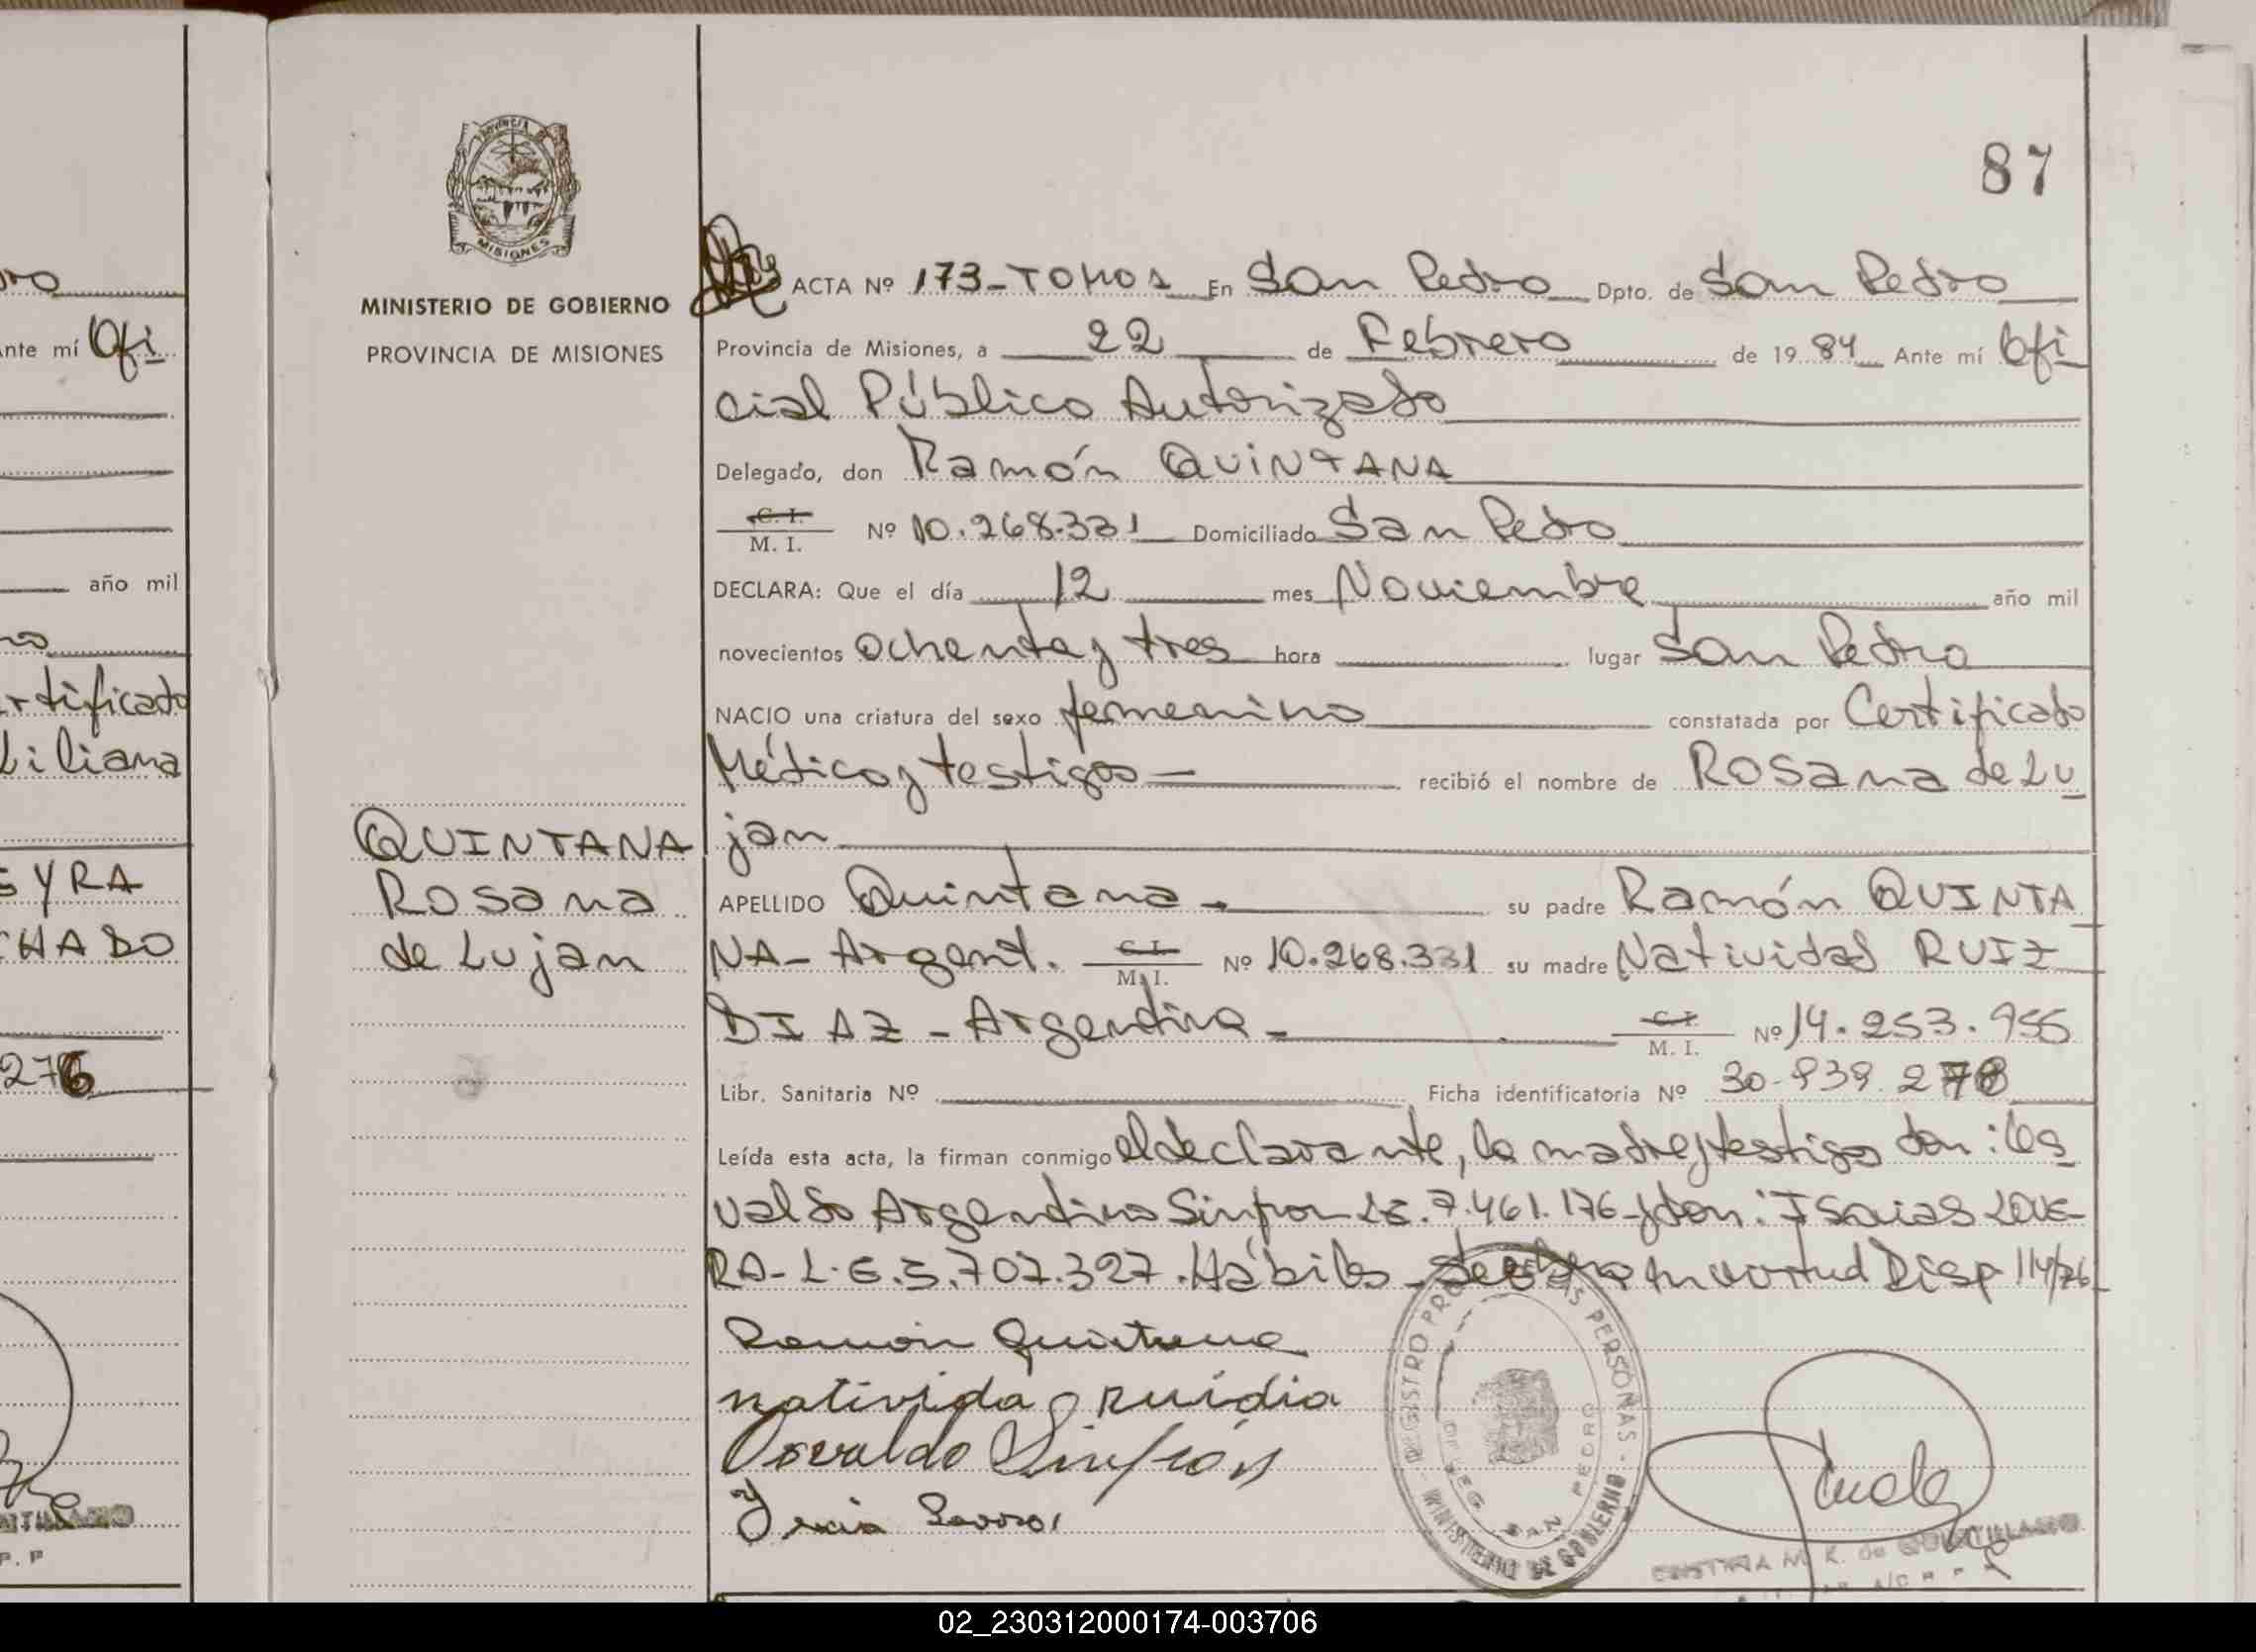 87
PROVINCIA DE
MISIONES
MINISTERIO DE GOBIERNO
PROVINCIA DE MISIONES
QUINTANA
Rosana
de Lujan
ACTA Nº 173-TOMO 1 En San Pedro Dpto. de San Pedro
Provincia de Misiones, a 22 de Febrero de 1984 Ante mí Ofi
cial Público Autorizado
Delegado, don Ramón QUINTANA
C. I.
M. I. Nº 10.268.331 Domiciliado San Pedro
DECLARA: Que el día 12 mes Noviembre año mil
novecientos ochenta y tres hora lugar San Pedro
NACIO una criatura del sexo femenino constatada por Certificado
Médico y testigos — recibió el nombre de Rosana de Lu
jan
APELLIDO Quintana - su padre Ramón QUINTA
NA - Argent. C. I. M. I. Nº 10.268.331 su madre Natividad RUIZ
DIAZ - Argentina - C. I. M. I. Nº 14.253.955
Libr. Sanitaria Nº Ficha identificatoria Nº 30-939.278
Leída esta acta, la firman conmigo el declarante, la madre y testigos don: Os
valdo Argentino Sinfron L.E. 7.461.176 y don: Isaias LOVE
RA - L.E. 5.707.327. Hábiles - Disp 114/76
Ramón Quintana
natividad ruidia
Osvaldo
REGISTRO PRO AS PERSONAS - MINISTERIO DE GOBIERNO
SAN PEDRO
CRISTINA M. K. de
ro
Ante mí Ofi
año mil
rtificado
Liliana
CHADO
276
02_230312000174-003706